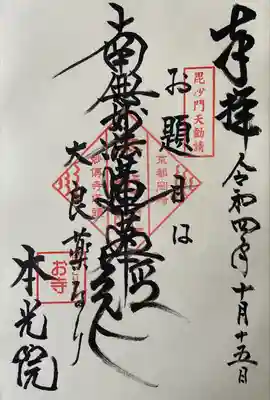 奉拝
令和四年十月十五日
毘沙門天勧請
京都岡崎
お題目は
南無妙法蓮華経
大良薬なり
お寺
本光院